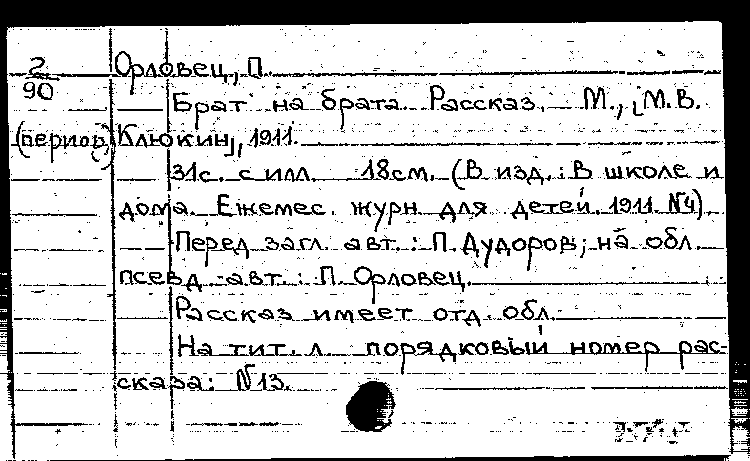 2
90
(период.)
Орловец, П.
Брат на брата. Рассказ. М., [М.В.
Клюкин], 1911.
31с. с илл. 18см. (В изд.: В школе и
дома. Ежемес. журн. для детей. 1911. №4).
Перед загл. авт.: П. Дудоров; на обл.
псевд. авт.: П. Орловец.
Рассказ имеет отд. обл.
На тит. л. порядковый номер рас-
сказа: №13.